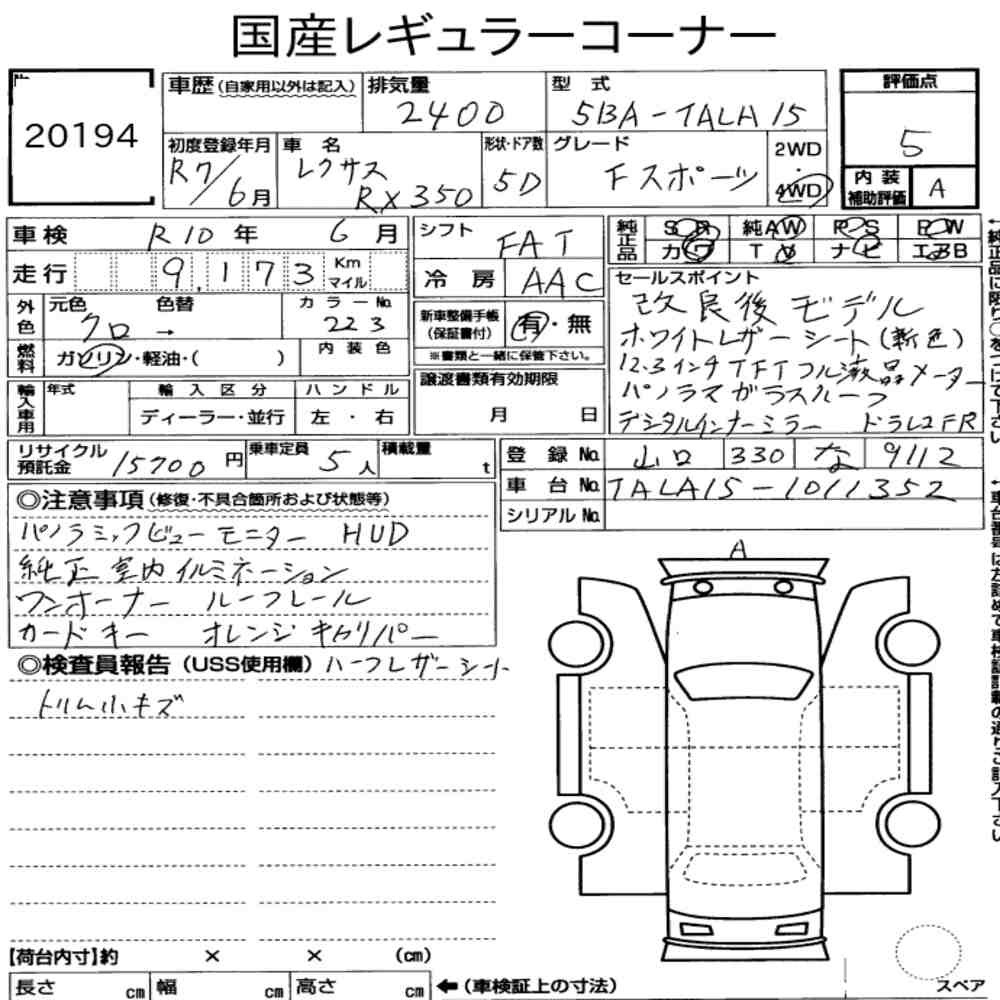 国産レギュラーコーナー
20194
車歴(自家用以外は記入) 排気量 2400 型式 5BA-TALA15
評価点 5
初度登録年月 R7/6月 車名 レクサス RX350 形状・ドア数 5D グレード Fスポーツ 2WD・4WD
内装補助評価 A
車検 R10年 6月
走行 9,173 Km マイル
外色 元色 クロ → 色替 カラーNo. 223
燃料 ガソリン・軽油・( ) 内装色
輸入車用 年式 輸入区分 ディーラー・並行 ハンドル 左・右
シフト FAT
冷房 AAC
新車整備手帳(保証書付) 有・無
※書類と一緒に保管下さい。
譲渡書類有効期限 月 日
純正品 SR 純AW PS PW
カワ TV ナビ エアB
セールスポイント
改良後モデル
ホワイトレザーシート(新色)
12.3インチTFTフル液晶メーター
パノラマガラスルーフ
デジタルインナーミラー ドラレコFR
リサイクル預託金 15700円 乗車定員 5人 積載量 t
登録No. 山口 330 な 9112
車台No. TALA15-1011352
シリアルNo.
◎注意事項(修復・不具合箇所および状態等)
パノラミックビューモニター HUD
純正室内イルミネーション
ワンオーナー ルーフレール
カードキー オレンジキャリパー
◎検査員報告(USS使用欄) ハーフレザーシート
トリム小キズ
A
【荷台内寸】約 × × (cm)
長さ cm 幅 cm 高さ cm ←(車検証上の寸法)
スペア
←純正品に限り○をつけて下さい
←車台番号は左詰めで車検証記載の通りご記入下さい